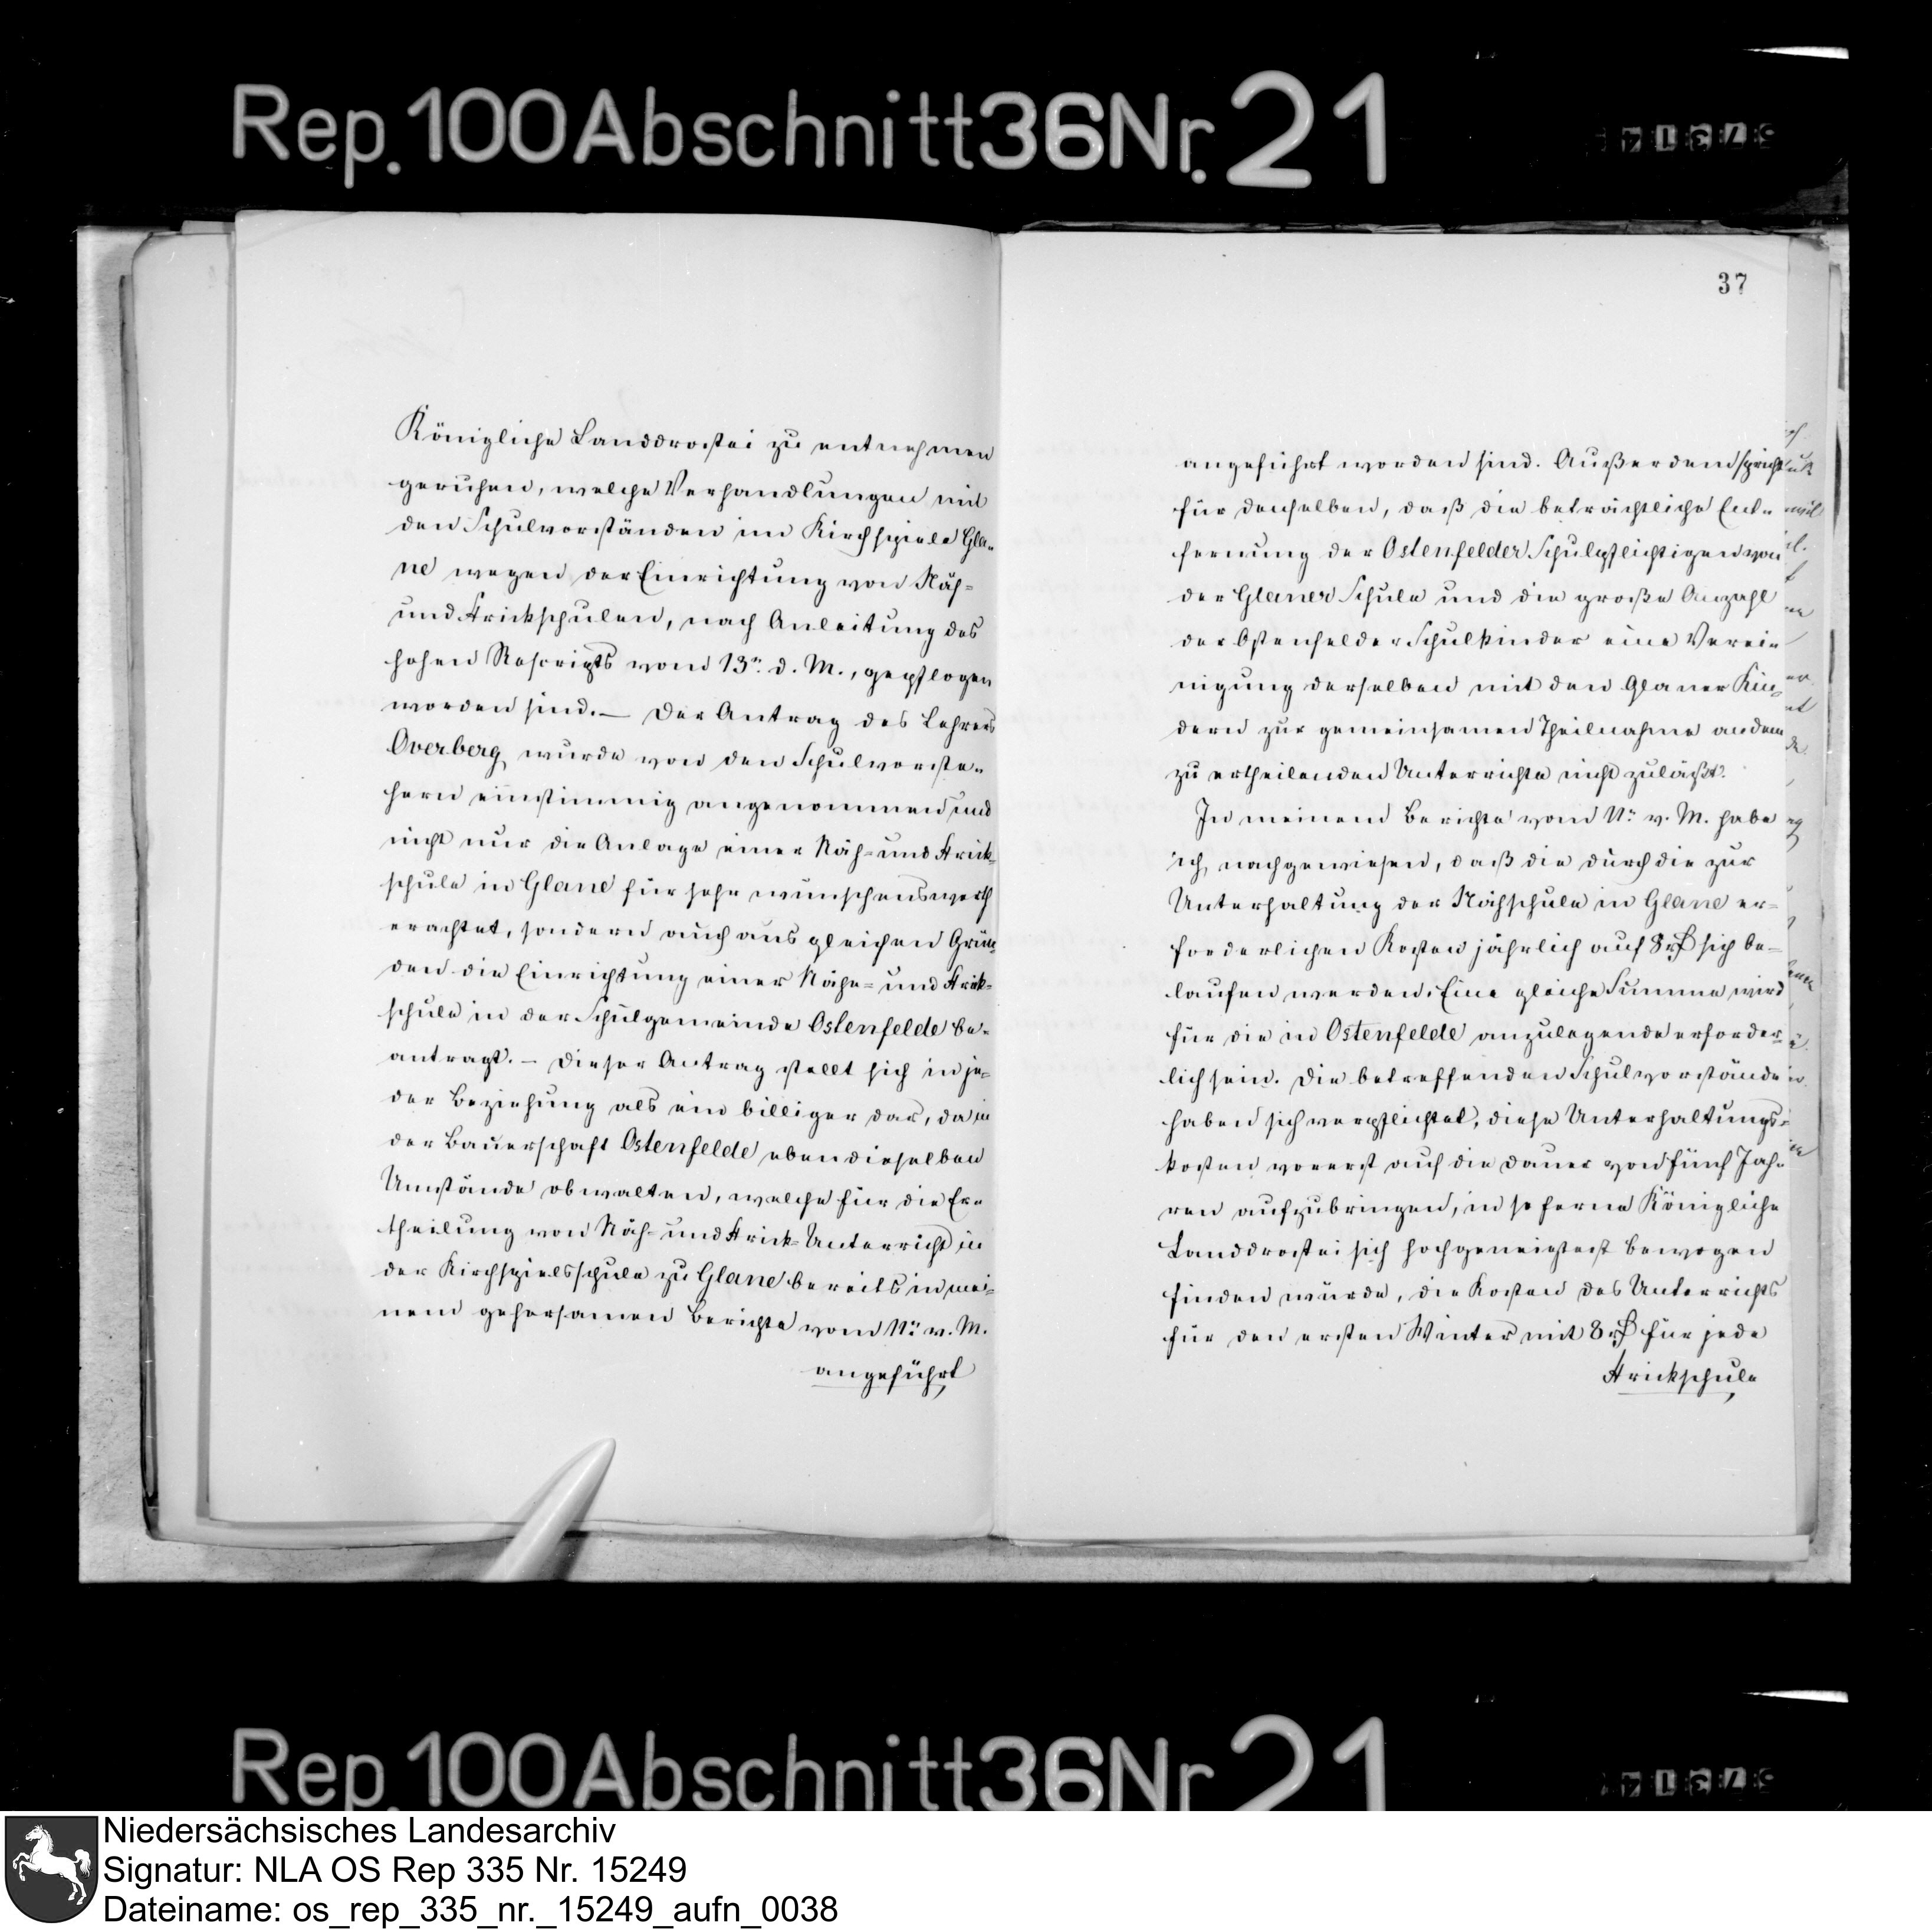 Rep. 100 Abschnitt 36 Nr. 21
Königliche Landdrostei zu entnehmen
geruhen, welche Verhandlungen mit
den Schulvorständen im Kirchspiele Gla-
ne wegen der Einrichtung von Näh-
und Strickschulen, nach Anleitung des
hohen Rescripts vom 13n d. M., gepflogen
worden sind. — Der Antrag des Lehrers
Overberg wurde von den Schulvorste-
hern einstimmig angenommen und
nicht nur die Anlage einer Näh- und Strick-
schule in Glane für sehr wünschenswerth
erachtet, sondern auch aus gleichen Grün-
den die Einrichtung einer Nähe- und Strick-
schule in der Schulgemeinde Ostenfelde be-
antragt. — Dieser Antrag stellt sich in je-
der Beziehung als ein billiger dar, da in
der Bauerschaft Ostenfelde eben dieselben
Umstände obwalten, welche für die Er-
theilung von Näh- und Strick-Unterricht in
der Kirchspielsschule zu Glane bereits in mei-
nem gehorsamen Berichte vom 11n v. M.
angeführt
37
angeführt worden sind. Außerdem spricht
für denselben, daß die beträchtliche Ent-
fernung der Ostenfelder Schulpflichtigen von
der Glaner Schule und die große Anzahl
der Ostenfelder Schulkinder eine Verei-
nigung derselben mit den Glaner Kin-
dern zur gemeinsamen Theilnahme an dem
zu ertheilenden Unterrichte nicht zuläßt.
In meinem Berichte vom 11n v. M. habe
ich nachgewiesen, daß die durch die zur
Unterhaltung der Nähschule in Glane er-
forderlichen Kosten jährlich auf 8 rß sich be-
laufen werden. Eine gleiche Summe wird
für die in Ostenfelde anzulegende erforder-
lich sein. Die betreffenden Schulvorstände
haben sich verpflichtet, diese Unterhaltungs-
kosten vorerst auf die Dauer von fünf Jah-
ren aufzubringen, in so ferne Königliche
Landdrostei sich hochgeneigtest bewogen
finden würde, die Kosten des Unterrichts
für den ersten Winter mit 8 rß für jede
Strickschule
Rep. 100 Abschnitt 36 Nr. 21
Niedersächsisches Landesarchiv
Signatur: NLA OS Rep 335 Nr. 15249
Dateiname: os_rep_335_nr._15249_aufn_0038